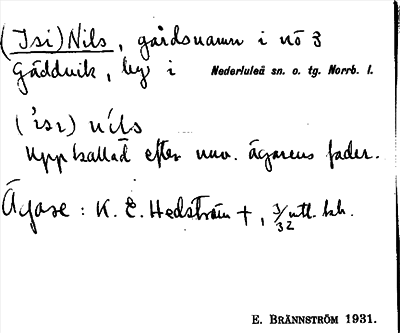 (Isi)Nils, gårdsnamn i nö 3
Gäddvik, by i Nederluleå sn. o. tg. Norrb. l.
('ısı) nìls
Uppkallad efter nuv. ägarens fader.
Ägare: K. E. Hedström +, 3/32 mtl.
E. BRÄNNSTRÖM 1931.